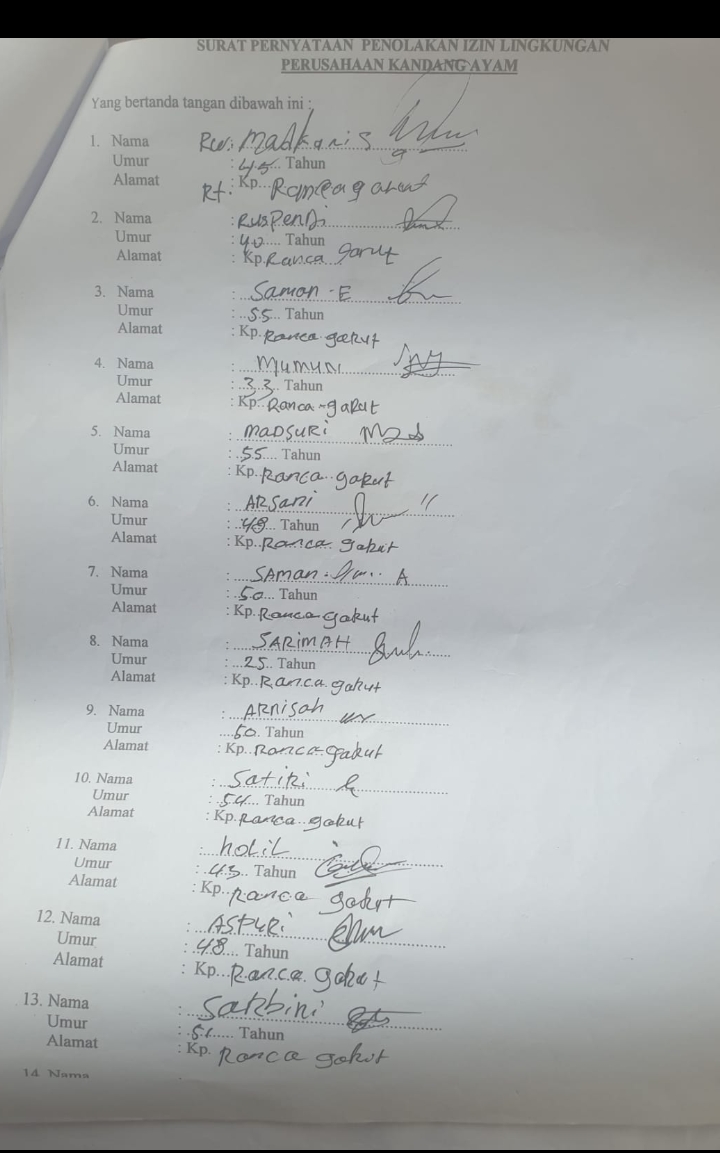 SURAT PERNYATAAN PENOLAKAN IZIN LINGKUNGAN
PERUSAHAAN KANDANG AYAM
Yang bertanda tangan dibawah ini :
1. Nama Rw. Madkanis
Umur : 45 Tahun
Alamat Rt. : Kp. Ranca garut
2. Nama : RUSPENDi
Umur : 40 Tahun
Alamat : Kp. Ranca garut
3. Nama : Saman - E
Umur : 55 Tahun
Alamat : Kp. Ranca garut
4. Nama : MUMUN
Umur : 33 Tahun
Alamat : Kp. Ranca - gaRut
5. Nama : MADSURi
Umur : 55 Tahun
Alamat : Kp. Ranca garut
6. Nama : ARSani
Umur : 48 Tahun
Alamat : Kp. Ranca garut
7. Nama : SAman. A
Umur : 50 Tahun
Alamat : Kp. Ranca garut
8. Nama : SARiMAH
Umur : 25 Tahun
Alamat : Kp. Ranca garut
9. Nama : ARNiSah
Umur 50 Tahun
Alamat : Kp. Ranca garut
10. Nama : SatiRi
Umur : 54 Tahun
Alamat : Kp. Ranca garut
11. Nama : holiL
Umur : 43 Tahun
Alamat : Kp. Ranca garut
12. Nama : ASPURi
Umur : 48 Tahun
Alamat : Kp. Ranca garut
13. Nama : SaRbini
Umur : Tahun
Alamat : Kp. Ranca garut
14. Nama